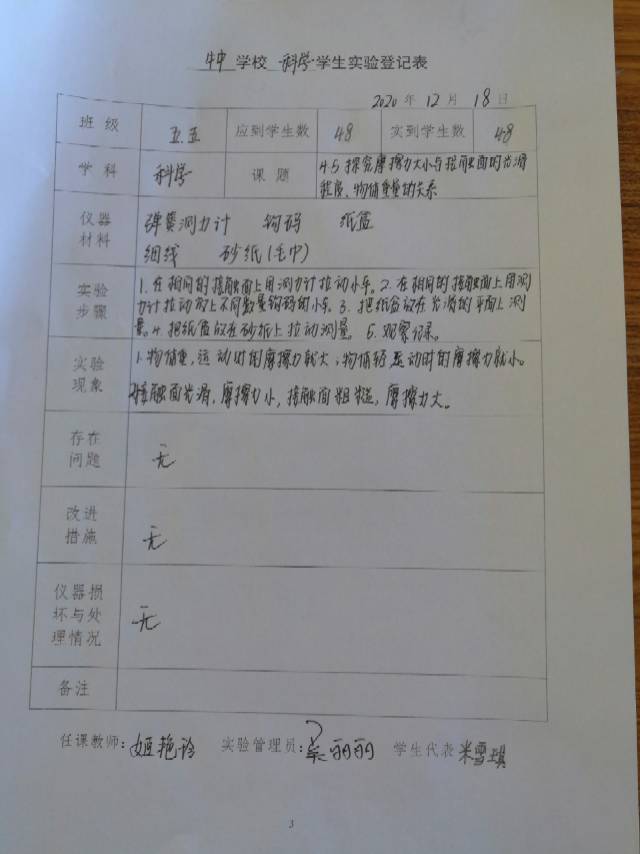 学校 科学 学生实验登记表
2020 年 12 月 18 日
班级 五.五 应到学生数 48 实到学生数 48
学科 科学 课题 4.5 探究摩擦力大小与接触面的光滑
程度、物体重量的关系
仪器 弹簧测力计 钩码 纸盒
材料 细线 砂纸(毛巾)
实验 1.在相同的接触面上用测力计拉动小车。2.在相同的接触面上用测
步骤 力计拉动放上不同数量钩码的小车。3.把纸盒放在光滑的平面上测
量。4.把纸盒放在砂纸上拉动测量。5.观察记录。
实验 1.物体重,运动时的摩擦力就大;物体轻运动时的摩擦力就小。
现象 2.接触面光滑,摩擦力小,接触面粗糙,摩擦力大。
存在
问题 无
改进
措施 无
仪器损
坏与处 无
理情况
备注
任课教师: 姬艳玲 实验管理员: 丽丽 学生代表 米雪琪
3